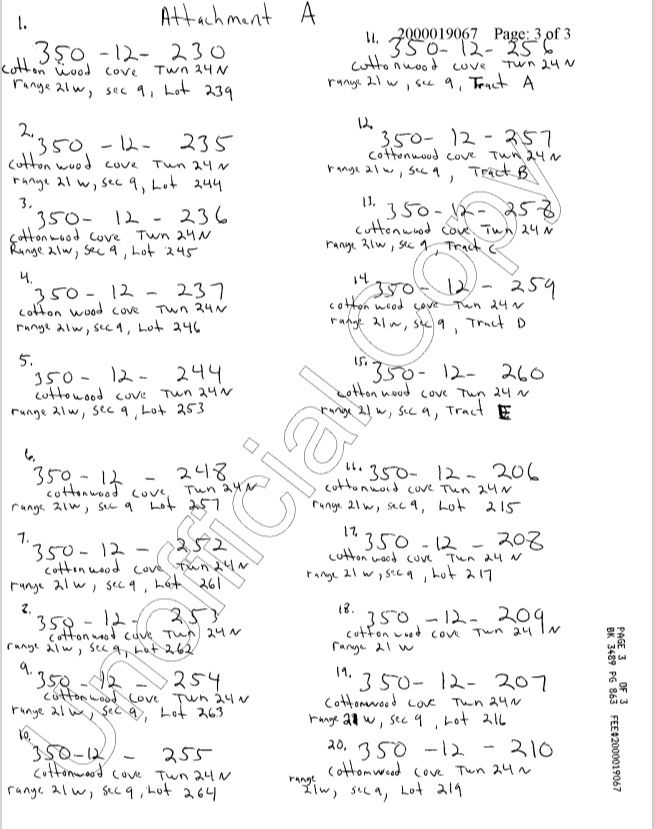 Attachment A
2000019067 Page: 3 of 3
1.
350 - 12 - 230
cotton wood cove Twn 24 N
range 21 w, sec 9, Lot 239
2.
350 - 12 - 235
cotton wood cove Twn 24 N
range 21 w, sec 9, Lot 244
3.
350 - 12 - 236
cottonwood cove Twn 24 N
Range 21w, Sec 9, Lot 245
4.
350 - 12 - 237
cotton wood cove Twn 24 N
range 21w, sec 9, Lot 246
5.
350 - 12 - 244
cottowood cove Twn 24 N
range 21w, sec 9, Lot 253
6.
350 - 12 - 248
cottonwood cove Twn 24 N
range 21w, sec 9 Lot 257
7.
350 - 12 - 252
cottonwood cove Twn 24 N
range 21w, sec 9, Lot 261
8.
350 - 12 - 253
cottonwood cove Twn 24 N
range 21w, sec 9, Lot 262
9.
350 - 12 - 254
cottonwood cove Twn 24 N
range 21w, sec 9, Lot 263
10.
350-12 - 255
cottonwood cove Twn 24 N
range 21w, sec 9, Lot 264
11.
350 - 12 - 256
cottonwood cove Twn 24 N
range 21w, sec 9, Tract A
12
350 - 12 - 257
cottonwood cove Twn 24 N
range 21w, sec 9, Tract B
13.
350 - 12 - 258
cottonwood cove Twn 24 N
range 21w, sec 9, Tract C
14
350 - 12 - 259
cottonwood cove Twn 24 N
range 21w, sec 9, Tract D
15.
350 - 12 - 260
cotton wood cove Twn 24 N
range 21w, sec 9, Tract E
16. 350 - 12 - 206
cottonwood cove Twn 24 N
range 21w, sec 9, Lot 215
17. 350 - 12 - 208
cotton wood cove Twn 24 N
range 21 w, sec 9, Lot 217
18. 350 - 12 - 209
cotton wood cove Twn 24 N
range 21 w
19. 350 - 12 - 207
Cottonwood cove Twn 24 N
range 21 w, sec 9, Lot 216
20. 350 - 12 - 210
cottonwood cove Twn 24 N
range 21w, sec 9, Lot 219
Unofficial Copy
PAGE 3 OF 3
BK 3489 PG 863 FEE#2000019067